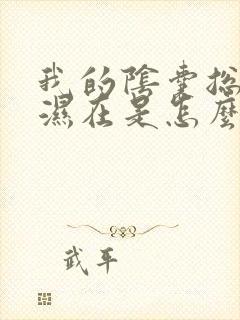 我的陰囊挩
濕在是怎麼
武平